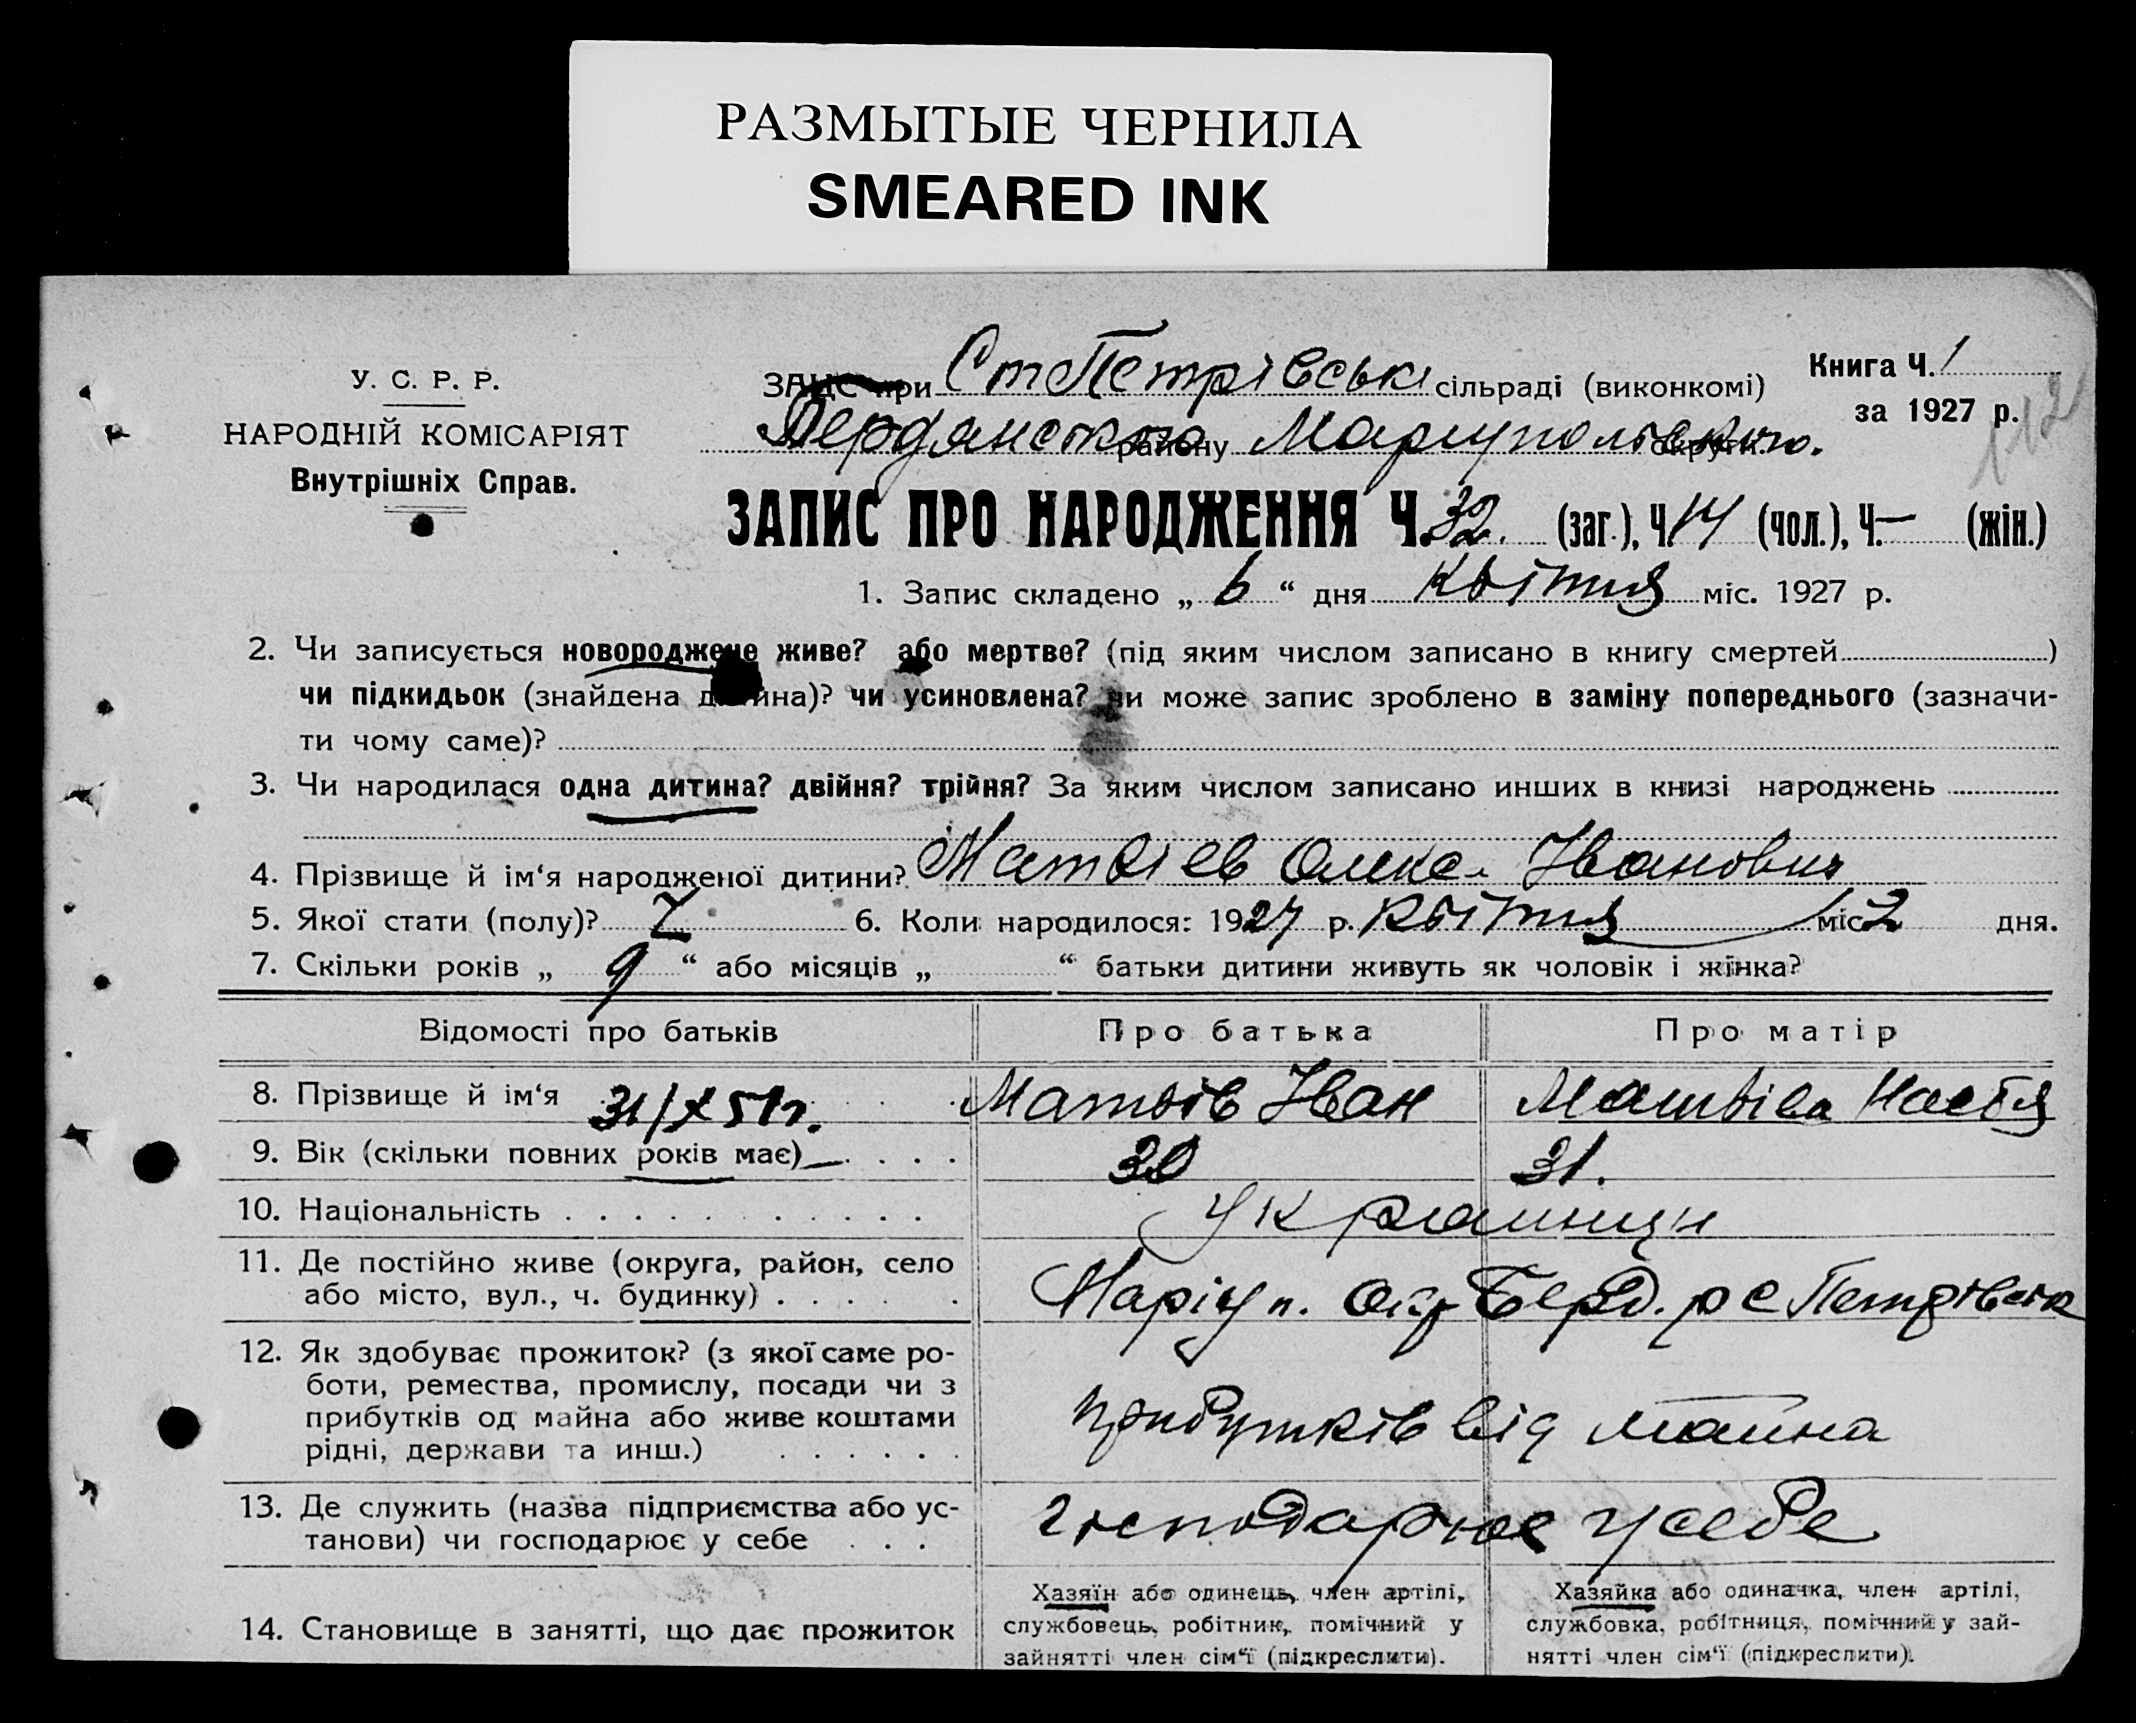 РАЗМЫТЫЕ ЧЕРНИЛА
SMEARED INK
У. С. Р. Р.
НАРОДНІЙ КОМІСАРІЯТ
Внутрішніх Справ.
ЗАЦС при СтПетрівські сільраді (виконкомі)
Книга Ч. 1
за 1927 р.
112
Бердянського району Маріупольською округи.
ЗАПИС ПРО НАРОДЖЕННЯ Ч. 32. (заг.), Ч. 14 (чол.), Ч. — (жін.)
1. Запис складено „ 6 “ дня Квітня міс. 1927 р.
2. Чи записується новороджене живе? або мертве? (під яким числом записано в книгу смертей )
чи підкидьок (знайдена дитина)? чи усиновлена? чи може запис зроблено в заміну попереднього (зазначи-
ти чому саме)?
3. Чи народилася одна дитина? двійня? трійня? За яким числом записано инших в книзі народжень
4. Прізвище й ім‘я народженої дитини? Матвієв Олекс. Іванович
5. Якої стати (полу)? Ч 6. Коли народилося: 1927 р. Квітня міс. 2 дня.
7. Скільки років „ 9 “ або місяців „ “ батьки дитини живуть як чоловік і жінка?
Відомості про батьків Про батька Про матір
8. Прізвище й ім‘я 31/X 51г. Матвів Іван Матвієва Настя
9. Вік (скільки повних років має) 30 31.
10. Національність Українци
11. Де постійно живе (округа, район, село
або місто, вул., ч. будинку) Маріуп. окр Берд. р с Петрівськ
12. Як здобуває прожиток? (з якої саме ро-
боти, ремества, промислу, посади чи з
прибутків од майна або живе коштами
рідні, держави та инш.) прибутків від майна
13. Де служить (назва підприємства або ус-
танови) чи господарює у себе господарює усебе
14. Становище в занятті, що дає прожиток
Хазяїн або одинець, член артілі,
службовець, робітник, помічний у
зайнятті член сім‘ї (підкреслити).
Хазяйка або одиначка, член артілі,
службовка, робітниця, помічний у зай-
нятті член сім‘ї (підкреслити).